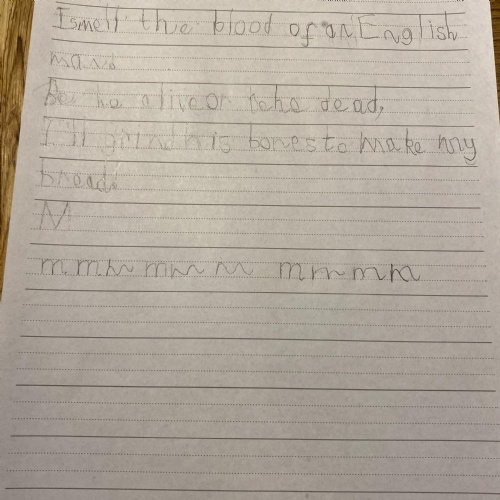 I smell the blood of an English
man.
Be he alive or be he dead,
I'll grind his bones to make my
bread.
M
m m m m m m m m m m